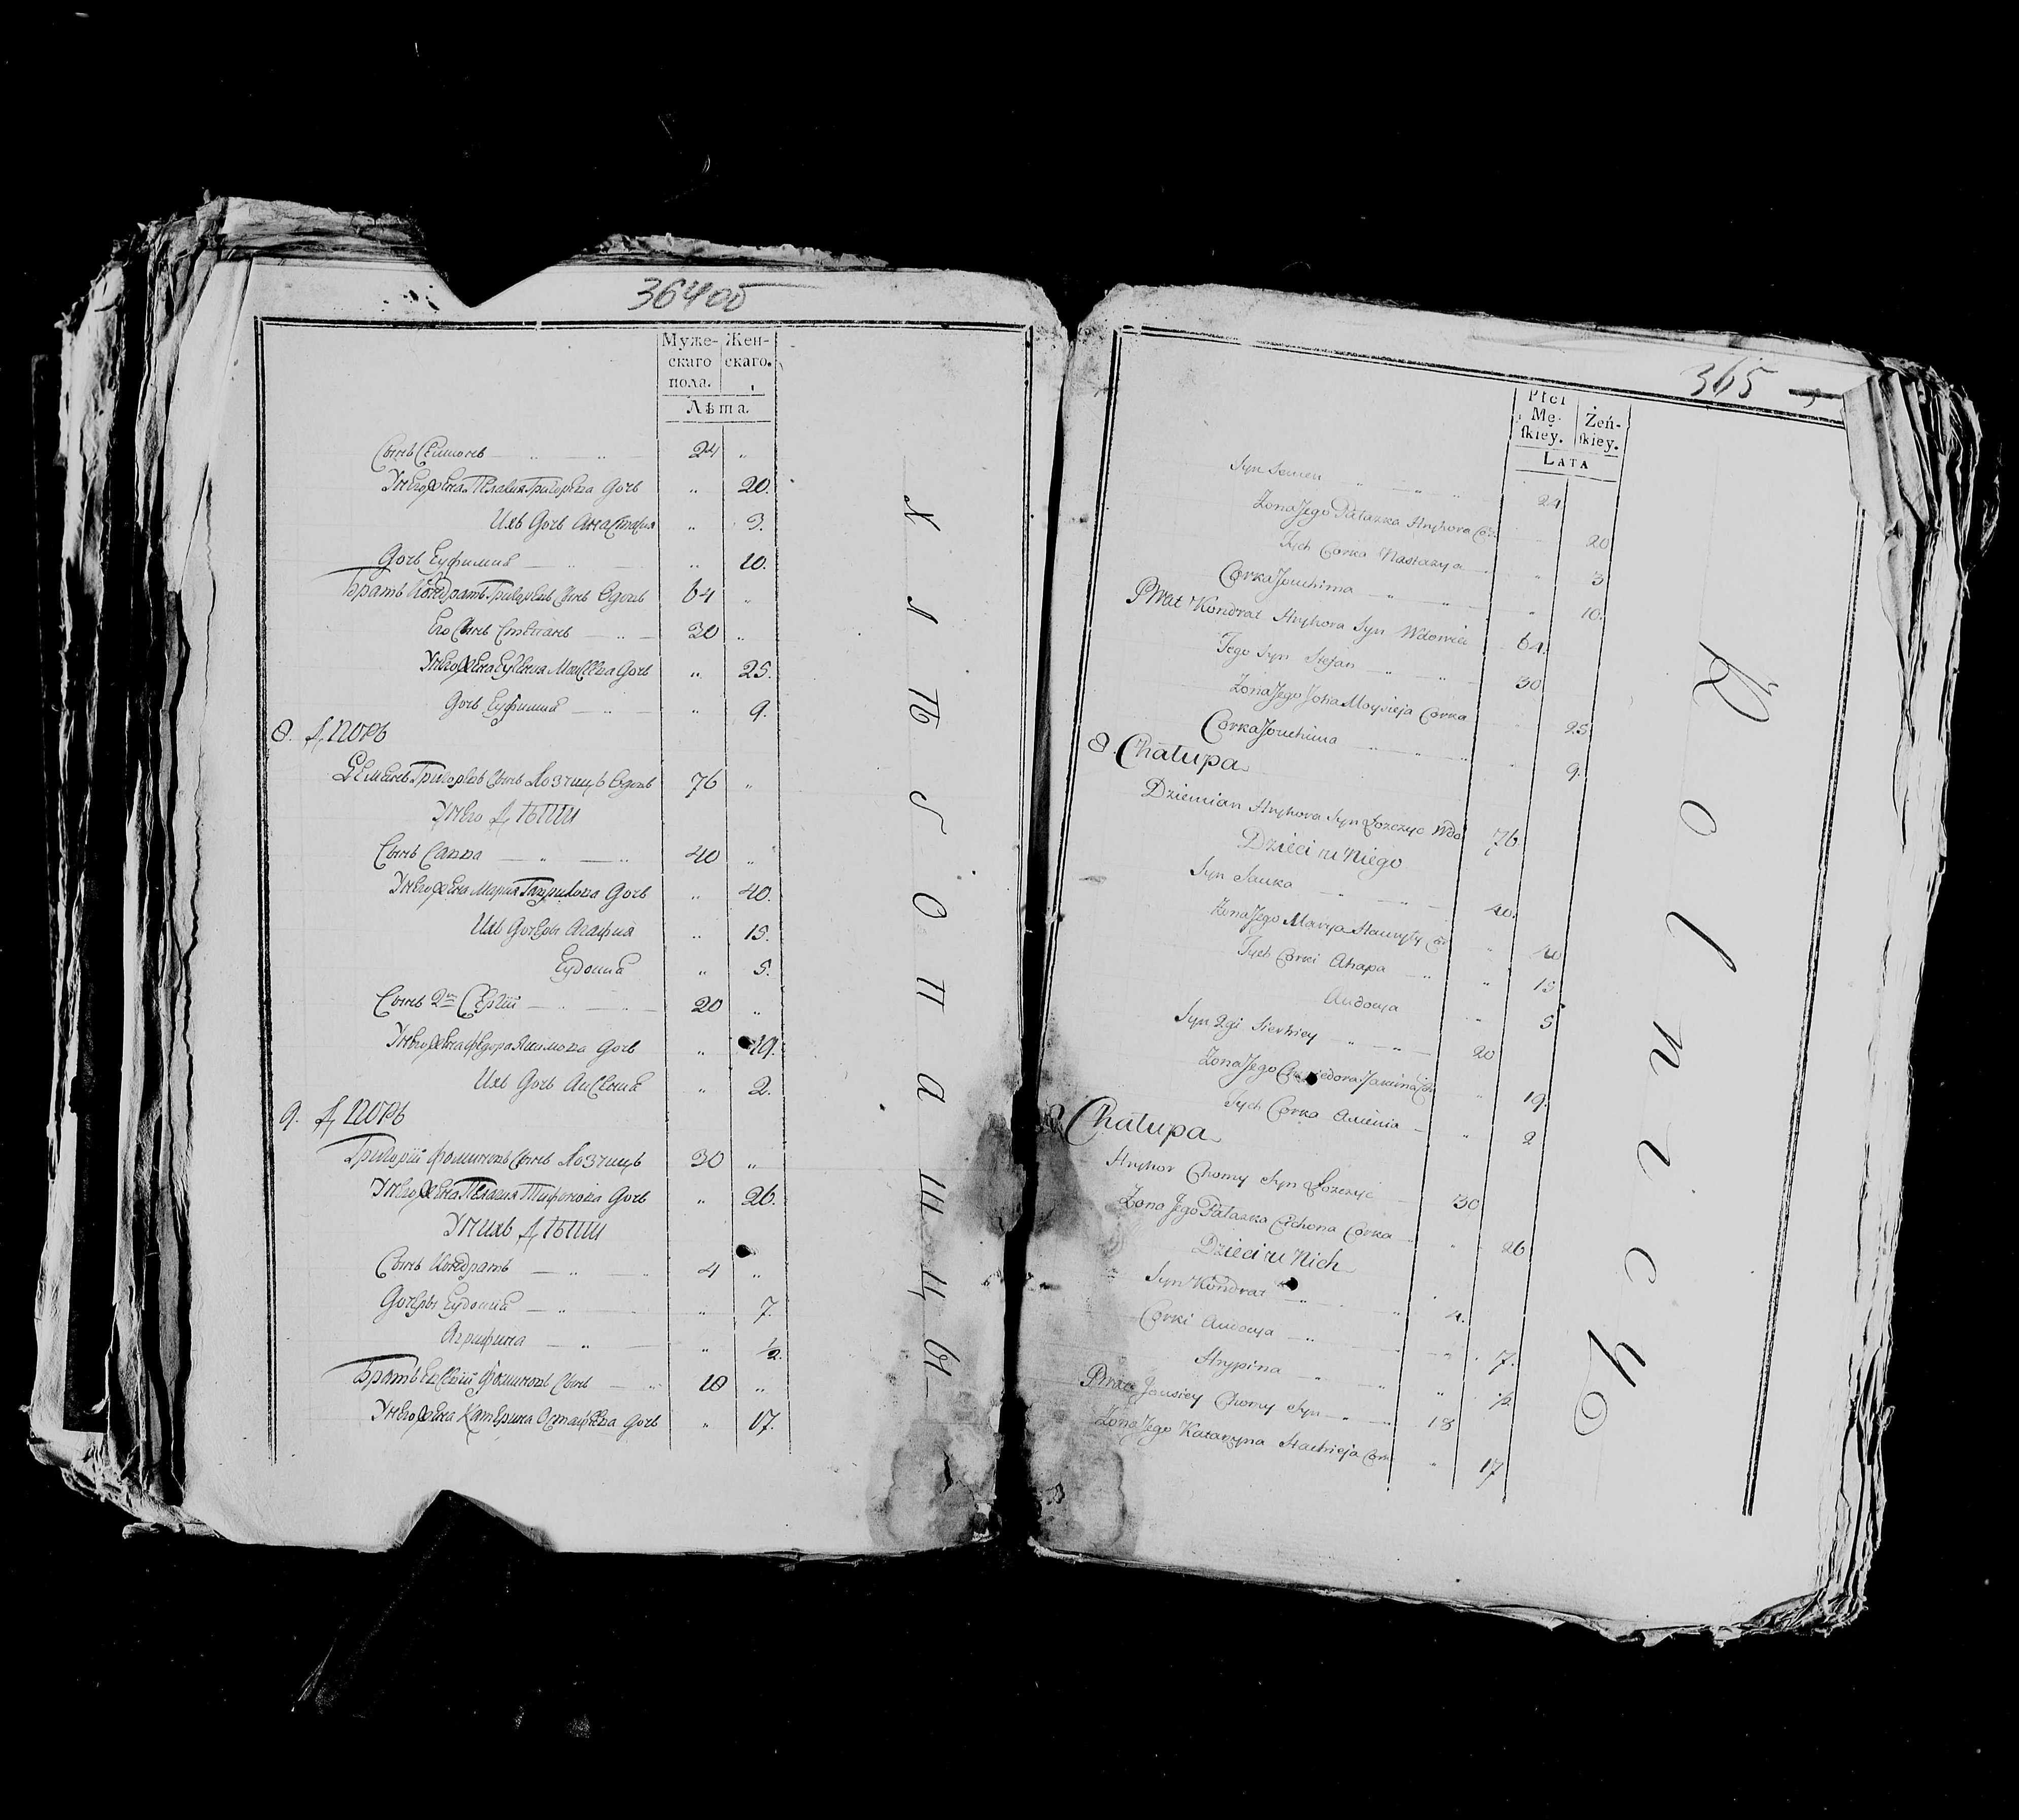 364 об
Муже- Жен-
скаго скаго.
пола.
Лѣта.
Сынъ Семионъ 24 "
У него жена Пелагия Григорьева дочь " 20.
Ихъ дочь Анастасия " 3.
Дочь Еуфимия " 10.
Братъ Кондратъ Григорьевъ сынъ вдовъ 64 "
Его сынъ Стефанъ 30 "
У него жена Еугения Моисеева дочь " 25.
Дочь Еуфимия " 9.
8. Дворъ
Демианъ Григорьевъ сынъ Лозчицъ вдовъ 76 "
У него дѣти
Сынъ Савва 40 "
У него жена Мария Гавриилова дочь " 40.
Ихъ дочери Агафия " 15.
Еудокия " 5.
Сынъ 2й Сергий 20 "
У него жена Федора Якимова дочь " 19.
Ихъ дочь Аксения " 2.
9. Дворъ
Григорий Фоминовъ сынъ Лозчицъ 30 "
У него жена Пелагия дочь " 26.
У нихъ дѣти
Сынъ Кондратъ 4 "
Дочери Еудокия " 7.
Агрифина " ½.
Братъ Фоминовъ сынъ 18 "
У него жена Катерина дочь " 17.
Хлѣбопашцы
365
Płci
Mę- Żeń-
ſkiey. ſkiey.
LATA
Syn Semen 24
Zona Jego Pałazka Hryhora Cor: 20
Tych Corka Nastazya 3
Corka Jouchima 10.
Brat Kondrat Hryhora Syn Wdowiec 64.
Jego Syn Stefan 30
Zona Jego Moysieja Corka 25
Corka Jouchima 9.
8. Chałupa
Dziemian Hryhora Syn Łozczyc Wdo 76
Dzieci u Niego
Syn Sauka 40.
Zona Jego Marya Hauryły Cor 40
Tych Corki Ahapa 15
Audocya 5
Syn 2gi Sierhiey 20
Zona Jego Jakima Cor 19.
Tych Corka Axienia 2
Chałupa
Hryhor Chomy Syn Łozczyc 30
Zona Jego Pałazka Cichona Corka 26
Dzieci u Nich
Syn Kondrat 4.
Corki Audocya 7.
Hrypina ½
Brat Jausiey Chomy Syn 18
Zona Jego Katarzyna Corka 17
Rolnicy